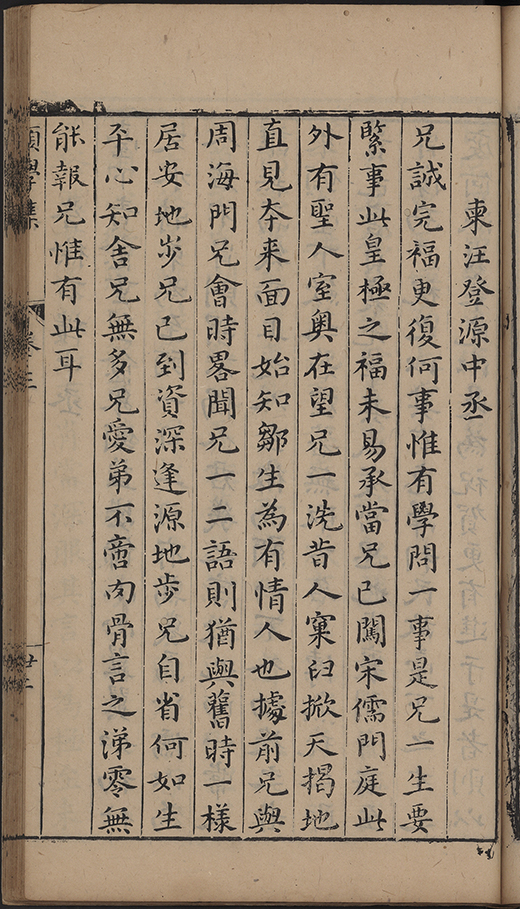 柬汪登源中丞
兄誠完福更復何事惟有學問一事是兄一生要
緊事此皇極之福未易承當兄已闖宋儒門庭此
外有聖人室奧在望兄一洗昔人窠臼掀天揭地
直見本来面目始知鄒生為有情人也據前兄與
周海門兄會時畧聞兄一二語則猶與舊時一樣
居安地步兄已到資深逢源地步兄自省何如生
平心知舍兄無多兄愛弟不啻肉骨言之涕零無
能報兄惟有此耳
願學集 卷三